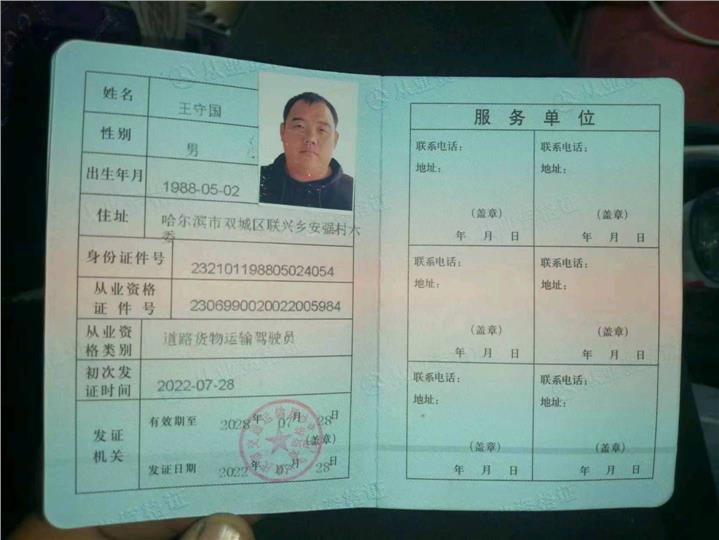 姓名 王守国
性别 男
出生年月 1988-05-02
住址 哈尔滨市双城区联兴乡安强村六
委
身份证件号 232101198805024054
从业资格
证件号 2306990020022005984
从业资
格类别 道路货物运输驾驶员
初次发
证时间 2022-07-28
发证
机关
有效期至 2028年 07月 28日
(盖章)
发证日期 2022年 07月 28日
服务单位
联系电话: 联系电话:
地址: 地址:
(盖章) (盖章)
年 月 日 年 月 日
联系电话: 联系电话:
地址: 地址:
(盖章) (盖章)
年 月 日 年 月 日
联系电话: 联系电话:
地址: 地址:
(盖章) (盖章)
年 月 日 年 月 日